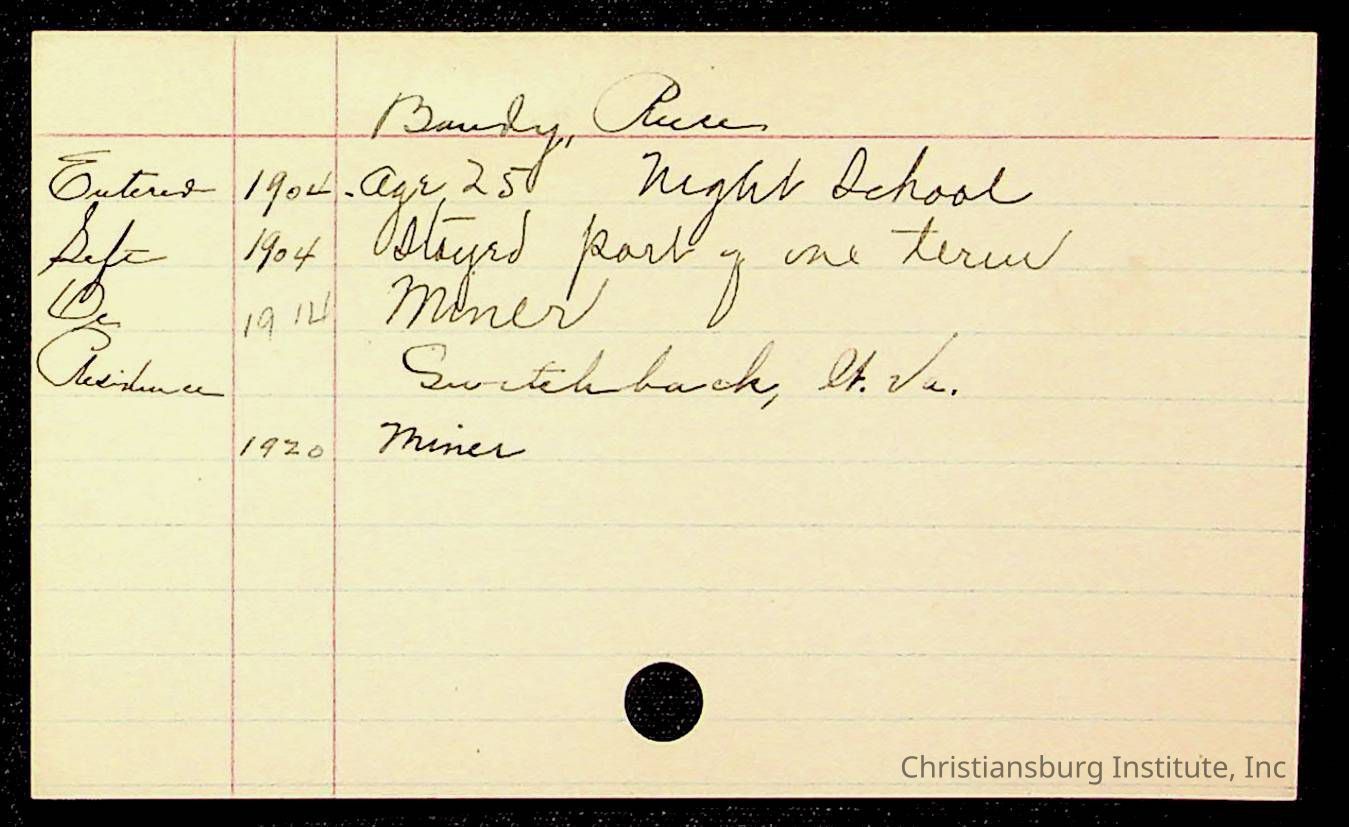 Bandy, Reese
Entered 1904 - Age 25 Night School
Left 1904 Stayed part of one term
Oc 1914 Miner
Residence Switchback, W. Va.
1920 Miner
Christiansburg Institute, Inc